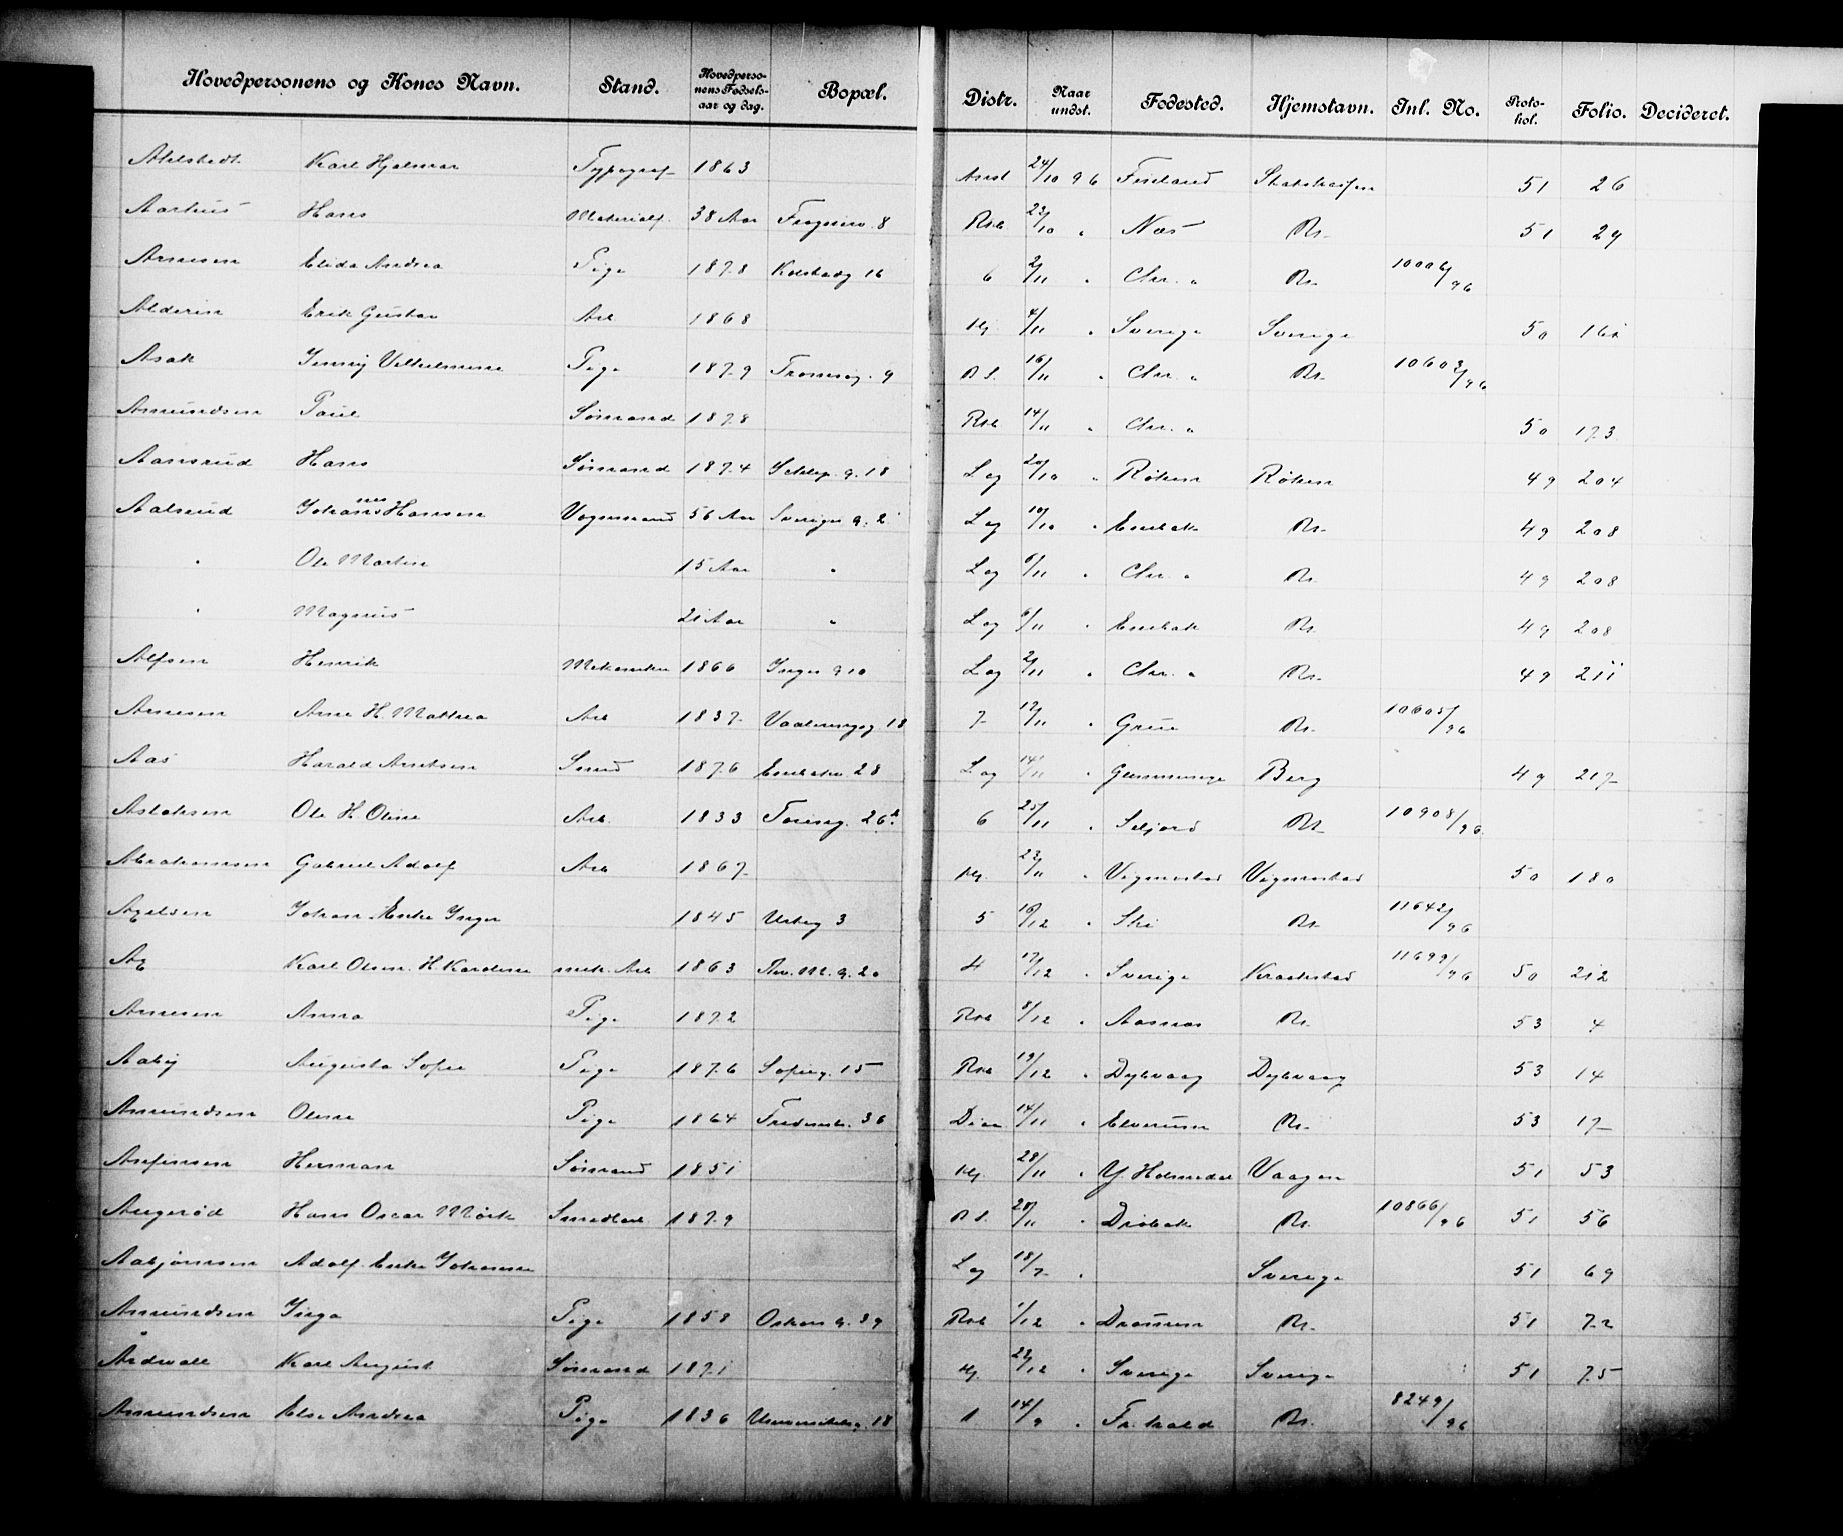 Hovedpersonens og Kones Navn. Stand. Hovedpersonens Fødselsaar og dag. Bopæl. Distr. Naar undst. Fødested. Hjemstavn. Inl. No. Protokol. Folio. Decideret.
Karl Hjalmar Typograf 1863 24/10 96 Finland 51 26
Aarhus Hans 38 Aar 8 23/10 " Næs Kr. 51 29
Arnesen Elida Andrea Pige 1878 16 6 2/11 " Chr. " Kr. 10006/96
Alderin Erik Gustav Arb 1868 4/11 " Sverige Sverige 50
Asak Jenny Vilhelmine Pige 1879 Tromsøg. 9 16/11 " Chr. " Kr. 10602/96
Amundsen Paul Sømand 1878 14/11 " Chr. " 50 173
Aansrud Hans Sømand 1874 g. 18 Lag 20/10 " Røken Røken 49 204
Aalsrud Johannes Hansen Vognmand 56 Aar Sveriges g. 2 Lag 10/10 " Enebak Kr. 49 208
" Ole Martin 15 Aar " Lag 6/11 " Chr. " Kr. 49 208
" Magnus 21 Aar " Lag 6/11 " Enebak Kr. 49 208
Alfsen Henrik 1866 Inges g 10 Lag 2/11 " Chr. " Kr. 49 211
Arnesen Arne H. Mathea Arb 1837 Vaalerenggg 18 7 17/11 " Grue Kr. 10605/96
Aas Harald Arntsen Smed 1876 Enebakv. 28 Lag 14/11 " Glemminge Berg 49 217
Aslaksen Ole H. Oline Arb. 1833 6 25/11 " Seljord Kr. 10908/96
Abrahamsen Gabriel Adolf Arb 1867 23/11 " Vigmostad Vigmostad 50 180
Axelsen Johan. Enke Inger 1845 Urteg 3 5 16/12 " Ski Kr. 11642/96
Ax Karl Olsen. H. Karoline mek. Arb 1863 4 17/12 " Sverige Kraakstad 11699/96 50 212
Arnesen Anna Pige 1872 8/12 " Aasnæs Kr. 53 4
Aaby Augusta Sofie Pige 1876 Sofieg. 15 19/12 " Dybvaag Dybvaag 53 14
Amundsen Oline Pige 1864 36 14/11 " Elverum Kr. 53 17
Anfinsen Herman Sømand 1851 28/11 " Y. Holmedal Vaagen 51 53
Angerød Hans Oscar Mørk 1879 20/11 " Drøbak Kr. 10866/96 51 56
Aabjørnsen Adolf. Enke Johanne Lag 18/7 " Sverige 51 69
Amundsen Inga Pige 1858 Oskars g. 39 1/12 " Drammen Kr. 51 72
Ardwall Karl August Sømand 1871 22/12 " Sverige Sverige 51 75
Amundsen Else Andrea Pige 1836 Universitetsg. 18 1 14/9 " Fr. hald Kr. 8249/96